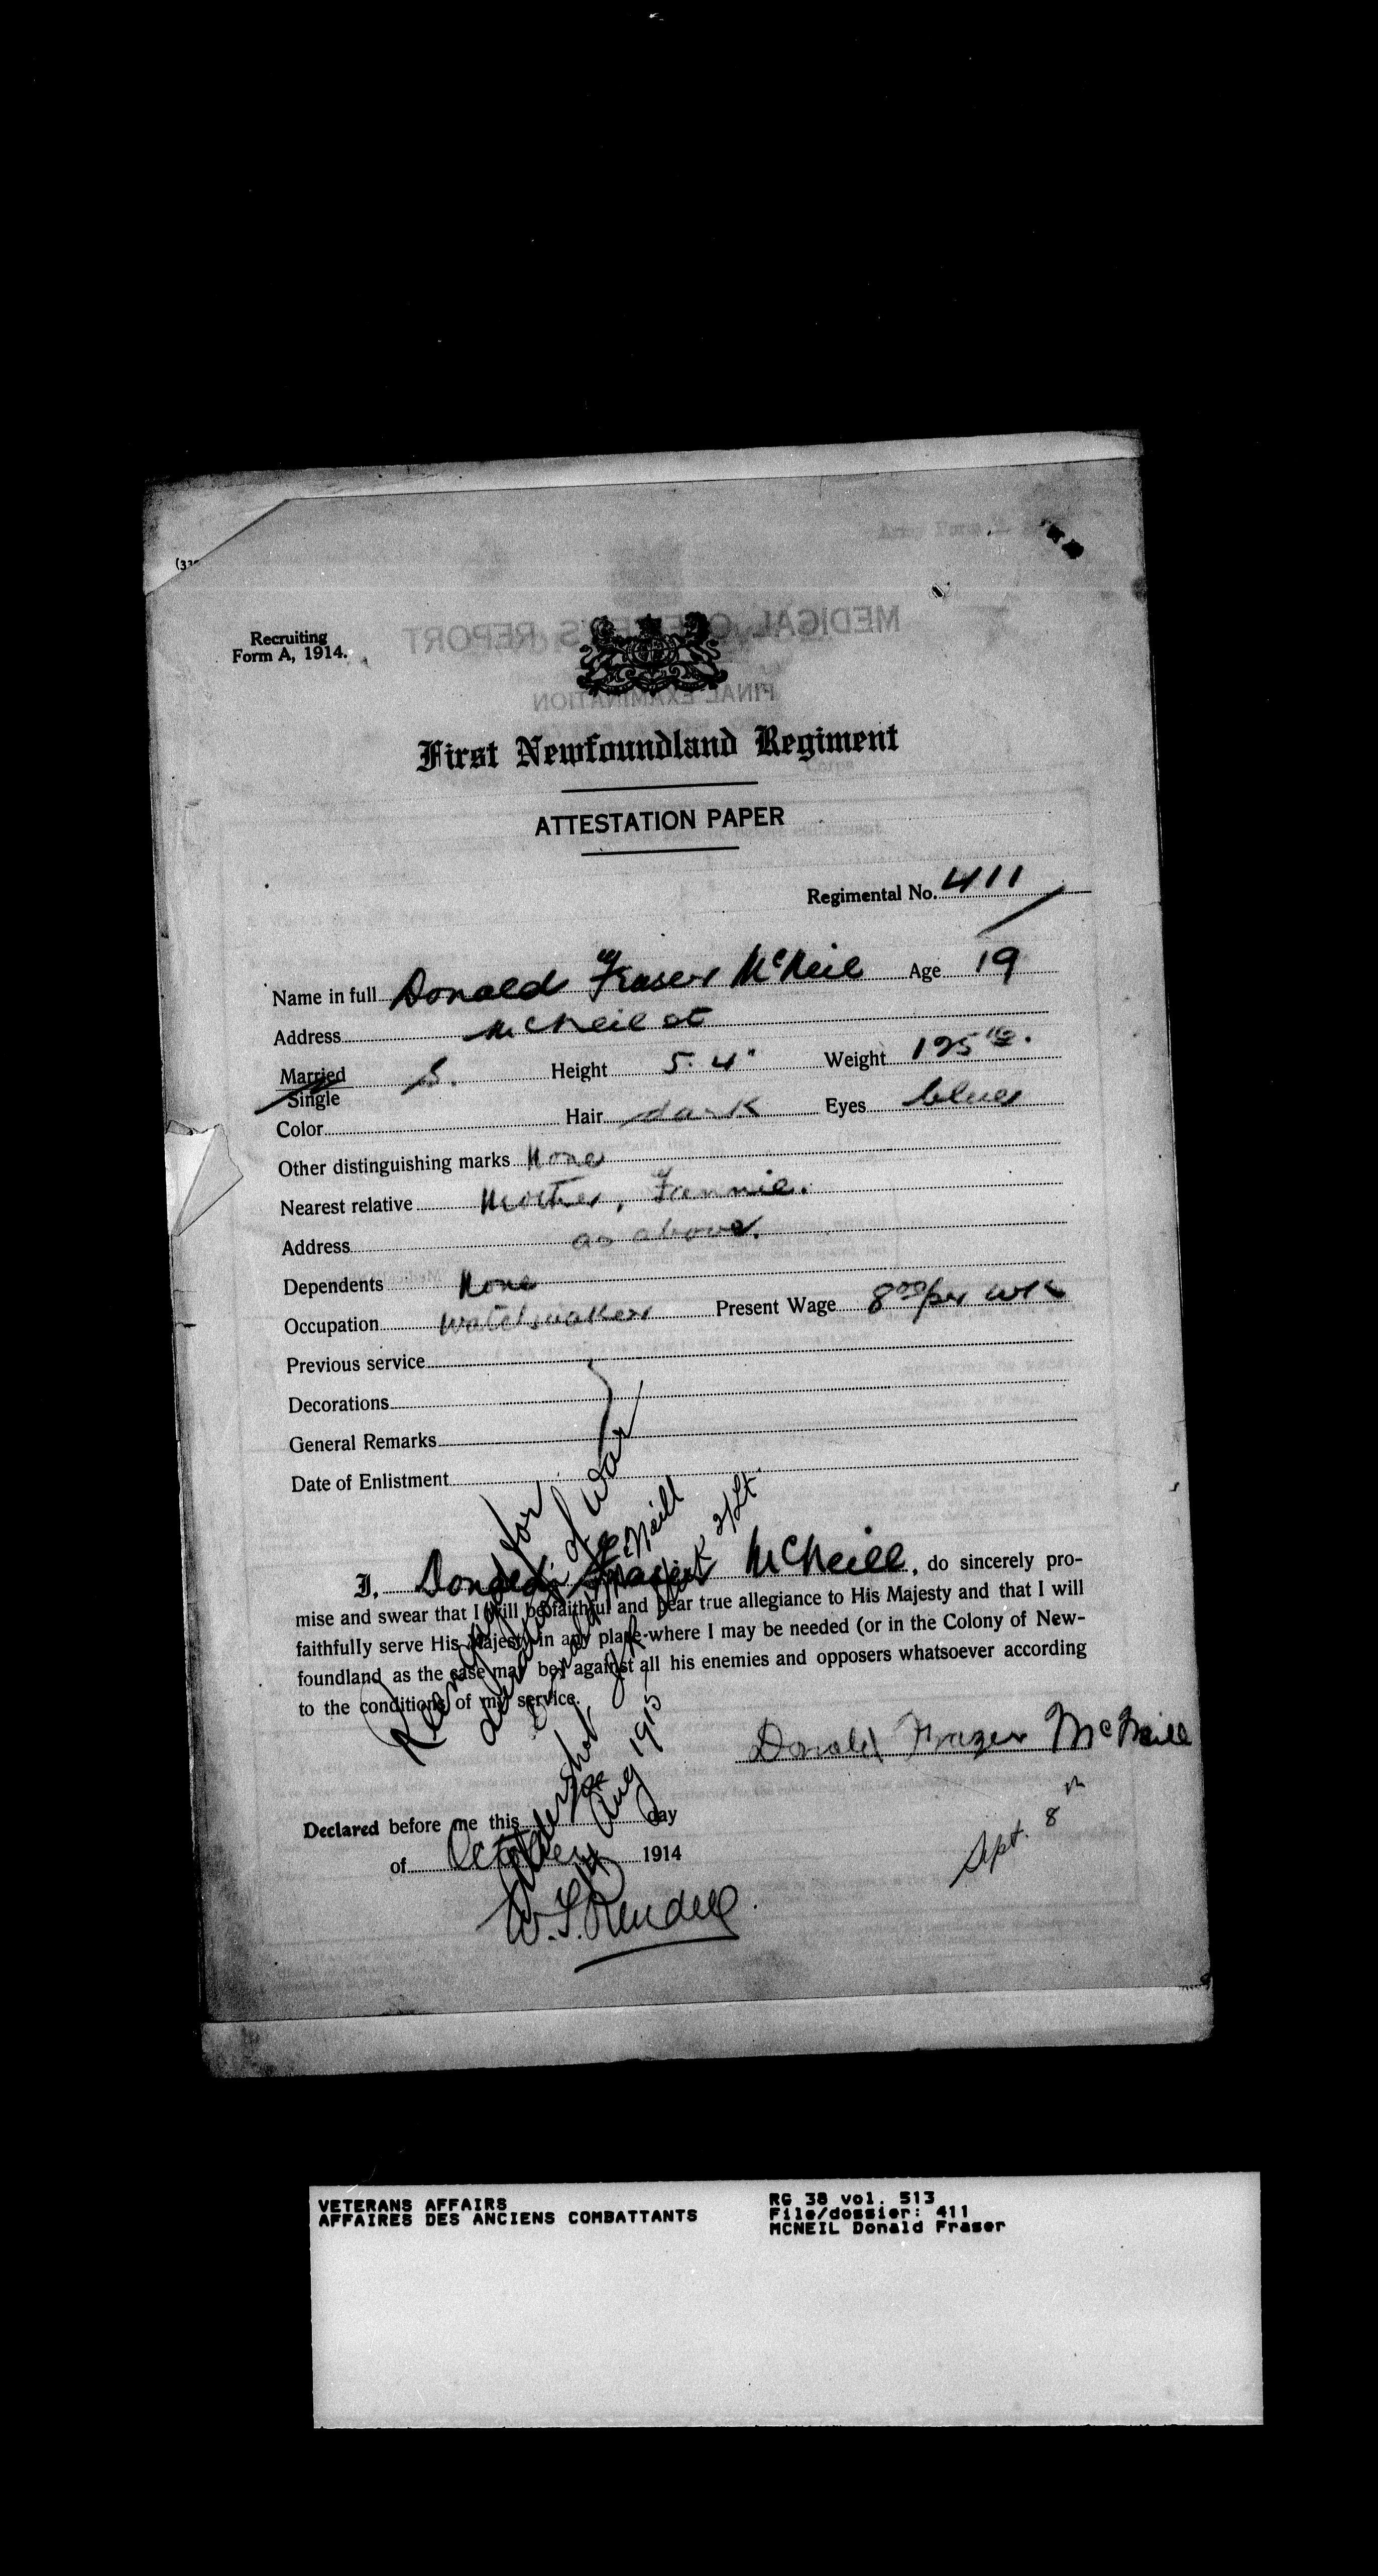 Recruiting
Form A, 1914.
MEDICAL OFFICER'S REPORT
FINAL EXAMINATION
First Newfoundland Regiment
ATTESTATION PAPER
Regimental No. 411
Name in full Donald Fraser McNeil Age 19
Address McNeil St
Married S. Height 5. 4" Weight 125 lbs.
Single
Color Hair dark Eyes blue
Other distinguishing marks None
Nearest relative Mother, Fannie.
Address as above.
Dependents None
Occupation Watchmaker Present Wage 8.00 per wk
Previous service
Decorations
General Remarks
Date of Enlistment
I, Donald Fraser McNeill, do sincerely pro-
mise and swear that I will be faithful and bear true allegiance to His Majesty and that I will
faithfully serve His Majesty in any place where I may be needed (or in the Colony of New-
foundland as the case may be) against all his enemies and opposers whatsoever according
to the conditions of my service.
Reengaged for
duration of War
Donald McNeill
2/Lt
Aldershot
Aug 1915
Donald Frazer McNeill
Declared before me this day
of October 1914
Sept. 8th
W.F. Rendell
VETERANS AFFAIRS
AFFAIRES DES ANCIENS COMBATTANTS
RG 38 vol. 513
File/dossier: 411
MCNEIL Donald Fraser